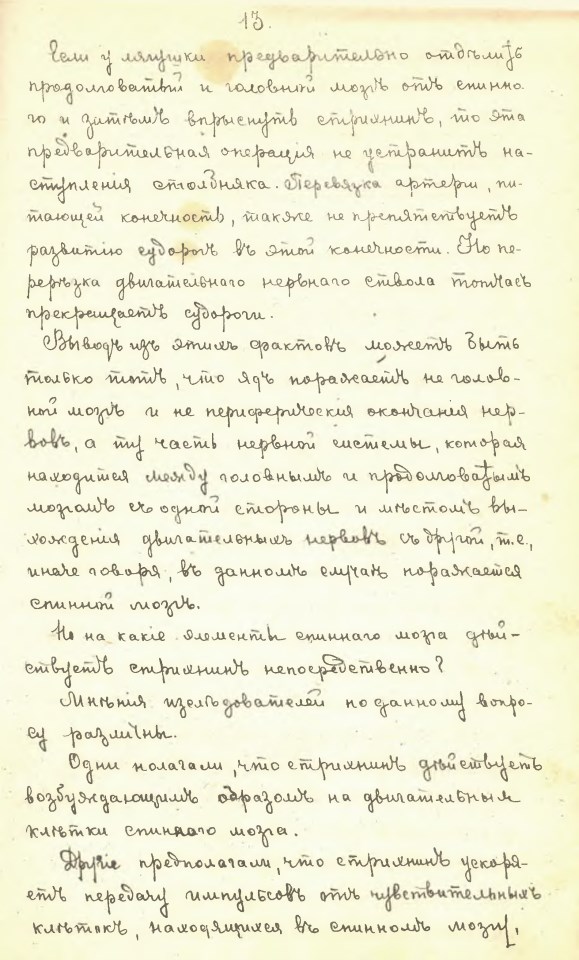 13.
Если у лягушки предварительно отдѣлить
продолговатый и головной мозгъ отъ спинно-
го и затѣмъ впрыснуть стрихнинъ, то эта
предварительная операція не устранитъ на-
ступленія столбняка. Перевязка артеріи, пи-
тающей конечность, также не препятствуетъ
развитію судорогъ въ этой конечности. Но пе-
рерѣзка двигательнаго нервнаго ствола тотчасъ
прекращаетъ судороги.
Выводъ изъ этихъ фактовъ можетъ быть
только тотъ, что ядъ поражаетъ не голов-
ной мозгъ и не периферическія окончанія нер-
вовъ, а ту часть нервной системы, которая
находится между головнымъ и продолговатымъ
мозгомъ съ одной стороны и мѣстомъ вы-
хожденія двигательныхъ нервовъ съ другой, т.е.,
иначе говоря, въ данномъ случаѣ поражается
спинной мозгъ.
Но на какіе элементы спиннаго мозга дѣй-
ствуетъ стрихнинъ непосредственно?
Мнѣнія изслѣдователей по данному вопро-
су различны.
Одни полагали, что стрихнинъ дѣйствуетъ
возбуждающимъ образомъ на двигательныя
клѣтки спиннаго мозга.
Другіе предполагали, что стрихнинъ ускоря-
етъ передачу импульсовъ отъ чувствительныхъ
клѣтокъ, находящихся въ спинномъ мозгу,